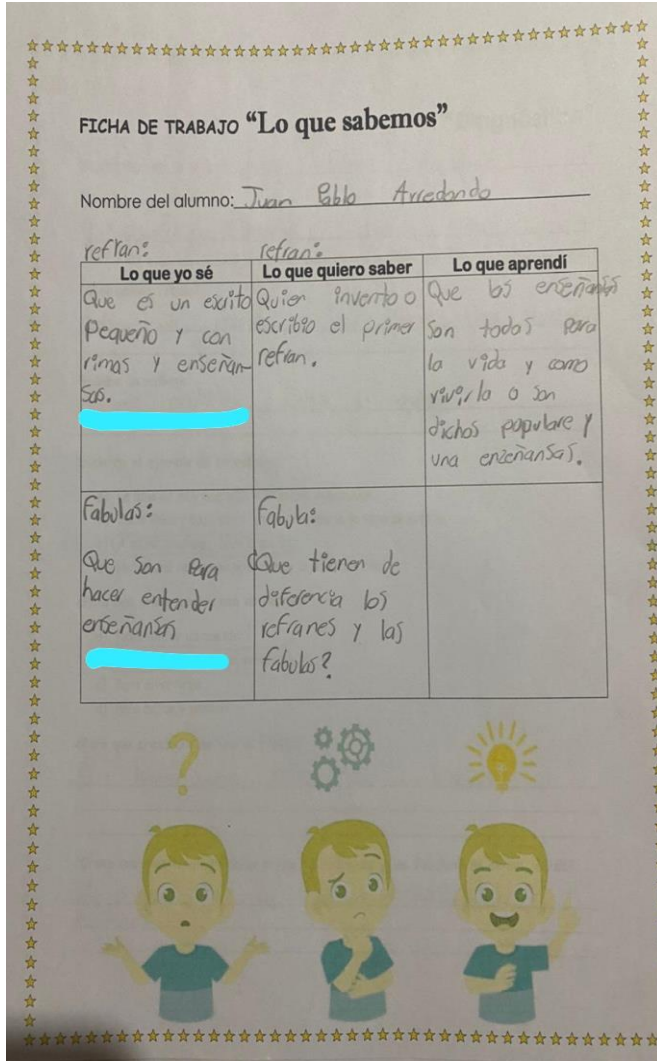 FICHA DE TRABAJO “Lo que sabemos”
Nombre del alumno: Juan Pablo Arredondo
refran:
refran:
Lo que yo sé
Lo que quiero saber
Lo que aprendí
Que es un escrito
Pequeño y con
rimas y enseñan-
sas.
Quien invento o
escribio el primer
refran.
Que las enseñansas
son todas para
la vida y como
vivirla o son
dichos populare y
una enseñansas.
Fabulas:
Que son para
hacer entender
enseñansas
Fabula:
¿Que tienen de
diferencia los
refranes y las
fabulas?